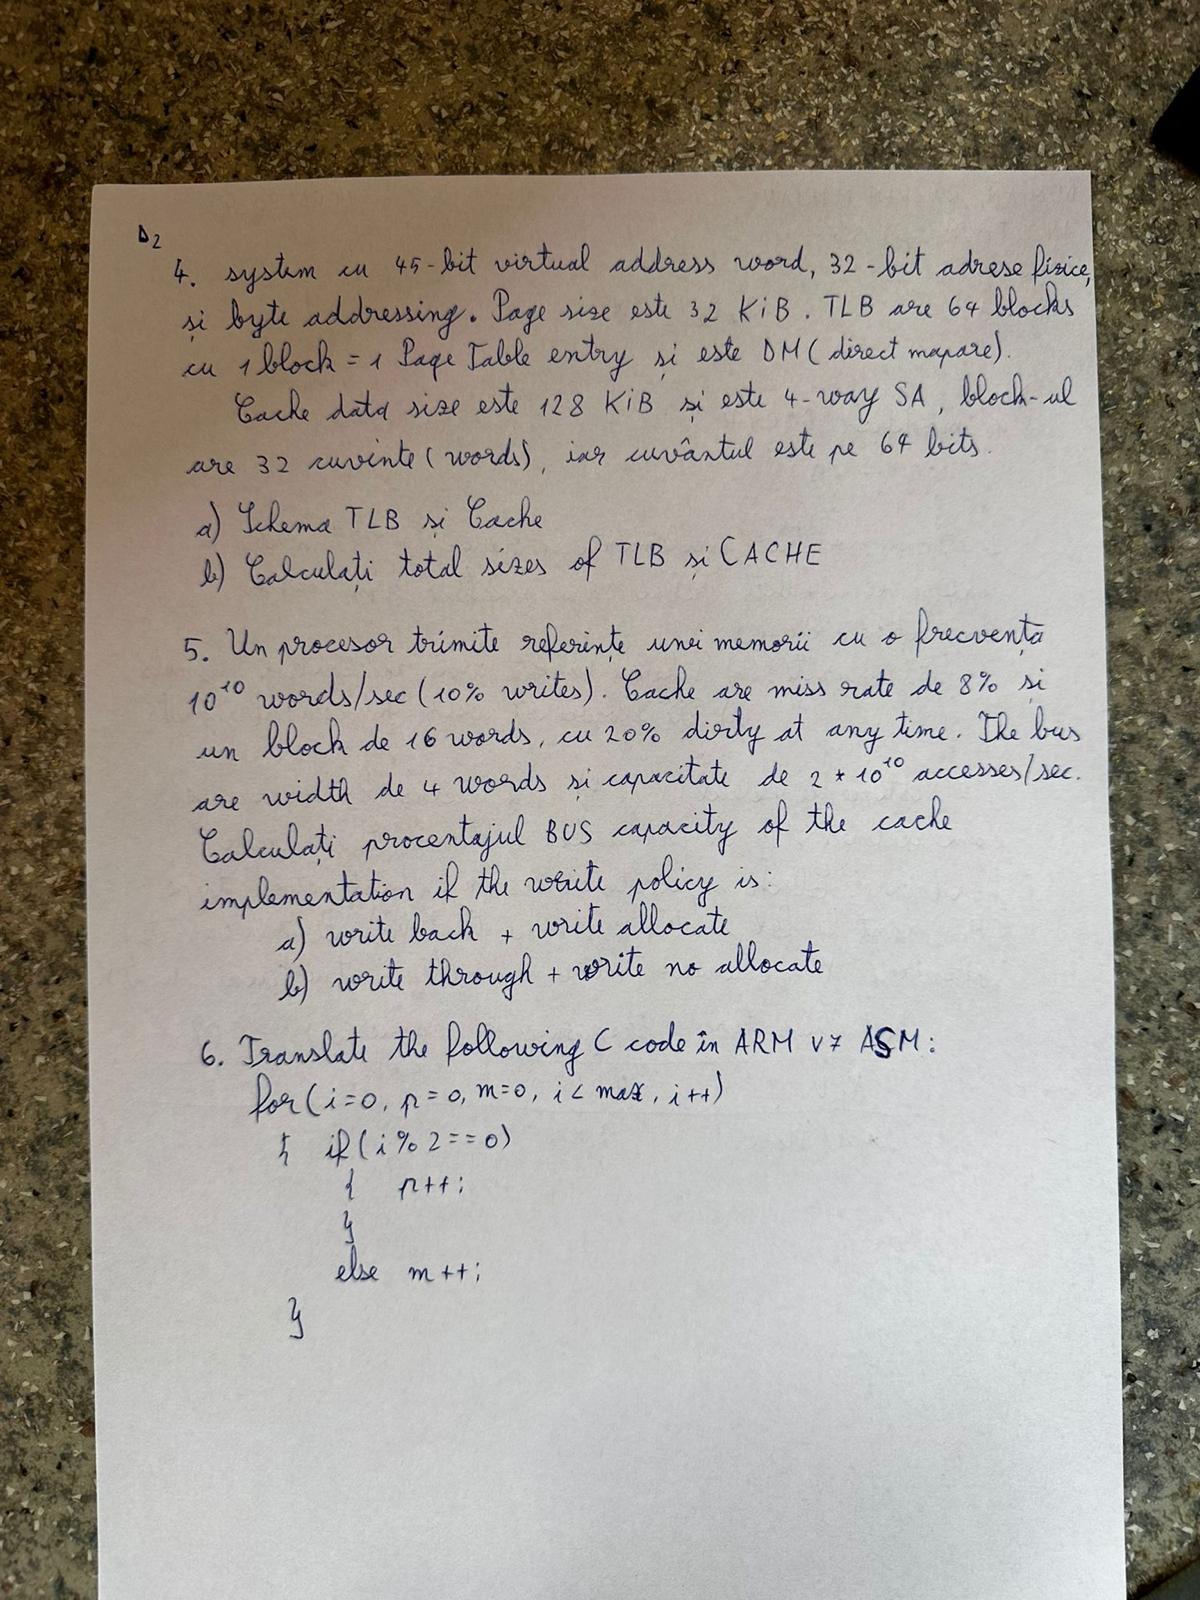 D2
4. system cu 45-bit virtual address word, 32-bit adrese fizice,
și byte addressing. Page size este 32 KiB. TLB are 64 blocks
cu 1 block = 1 Page Table entry și este DM (direct mapare).
Cache data size este 128 KiB și este 4-way SA, block-ul
are 32 cuvinte (words), iar cuvântul este pe 64 bits.
a) Schema TLB și Cache
b) Calculați total sizes of TLB și CACHE
5. Un procesor trimite referințe unei memorii cu o frecvență
10^10 words/sec (10% writes). Cache are miss rate de 8% și
un block de 16 words, cu 20% dirty at any time. The bus
are width de 4 words și capacitate de 2 * 10^10 accesses/sec.
Calculați procentajul BUS capacity of the cache
implementation if the write policy is:
a) write back + write allocate
b) write through + write no allocate
6. Translate the following C code în ARM v7 ASM:
for (i=0, p=0, m=0, i < max, i++)
{ if (i % 2 == 0)
{ p++;
}
else m++;
}